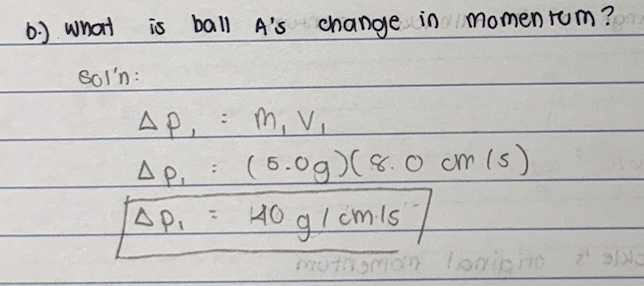 b.) What is ball A's change in momentum?
Sol'n:
Δp₁ = m₁ v₁
Δp₁ = (5.0g)(8.0 cm/s)
Δp₁ = 40 g/cm/s